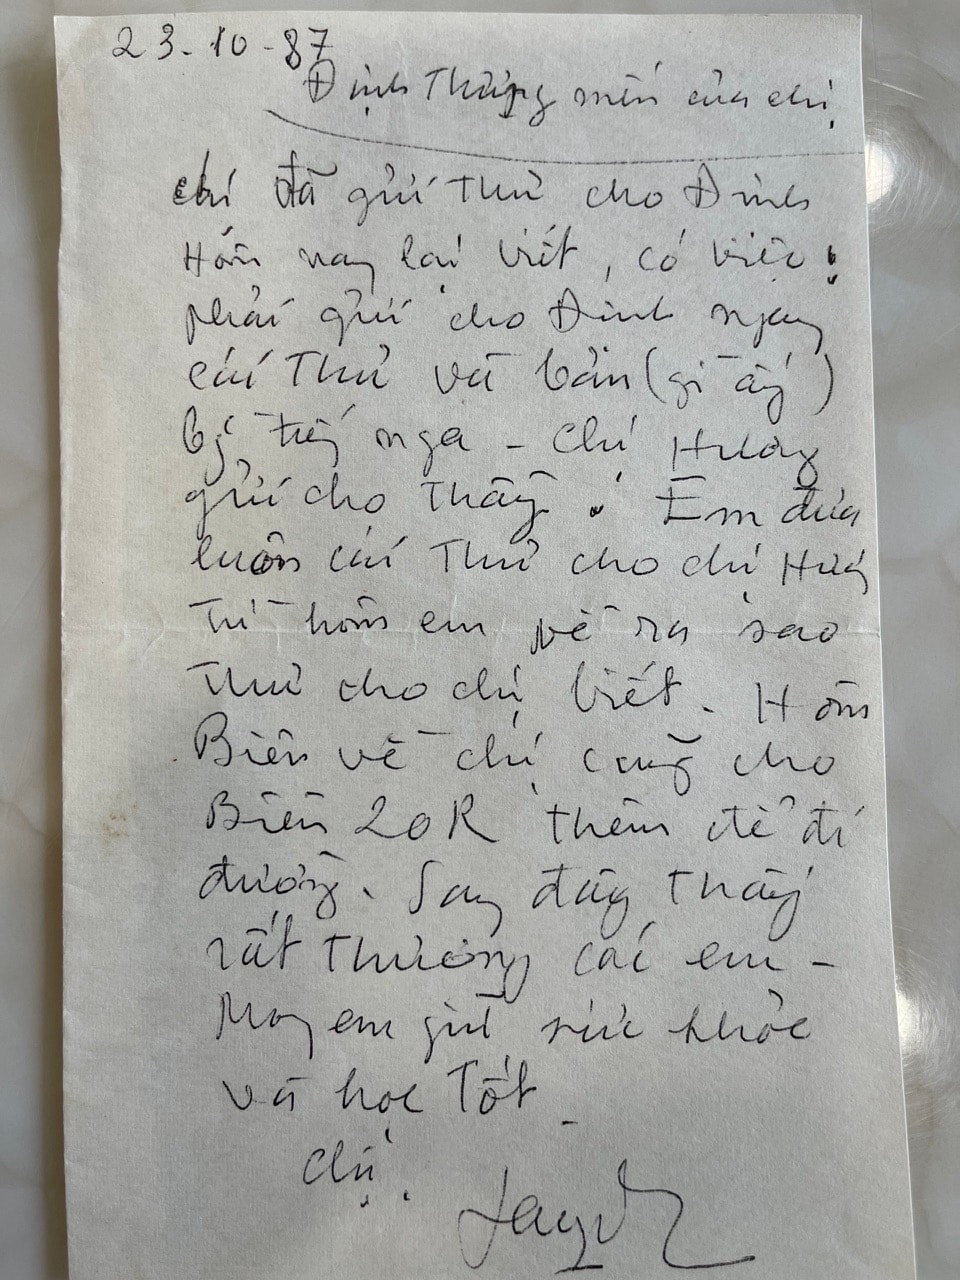 23-10-87
Định Thương mến của chị
chị đã gửi Thư cho Định
Hôm nay lại viết, có việc!
phải gửi cho Định ngay
cái Thư và bản (gì ấy)
bg tiếng nga - Chị Hương
gửi cho Thầy! Em đưa
luôn cái Thư cho chị Hương
Từ hôm em về ra sao
Thư cho chị biết. Hôm
Biên về chị cũng cho
Biên 20R thêm để đi
đường. Sang đây Thấy
rất Thương các em -
Mong em giữ sức khỏe
và học Tốt
Chị.